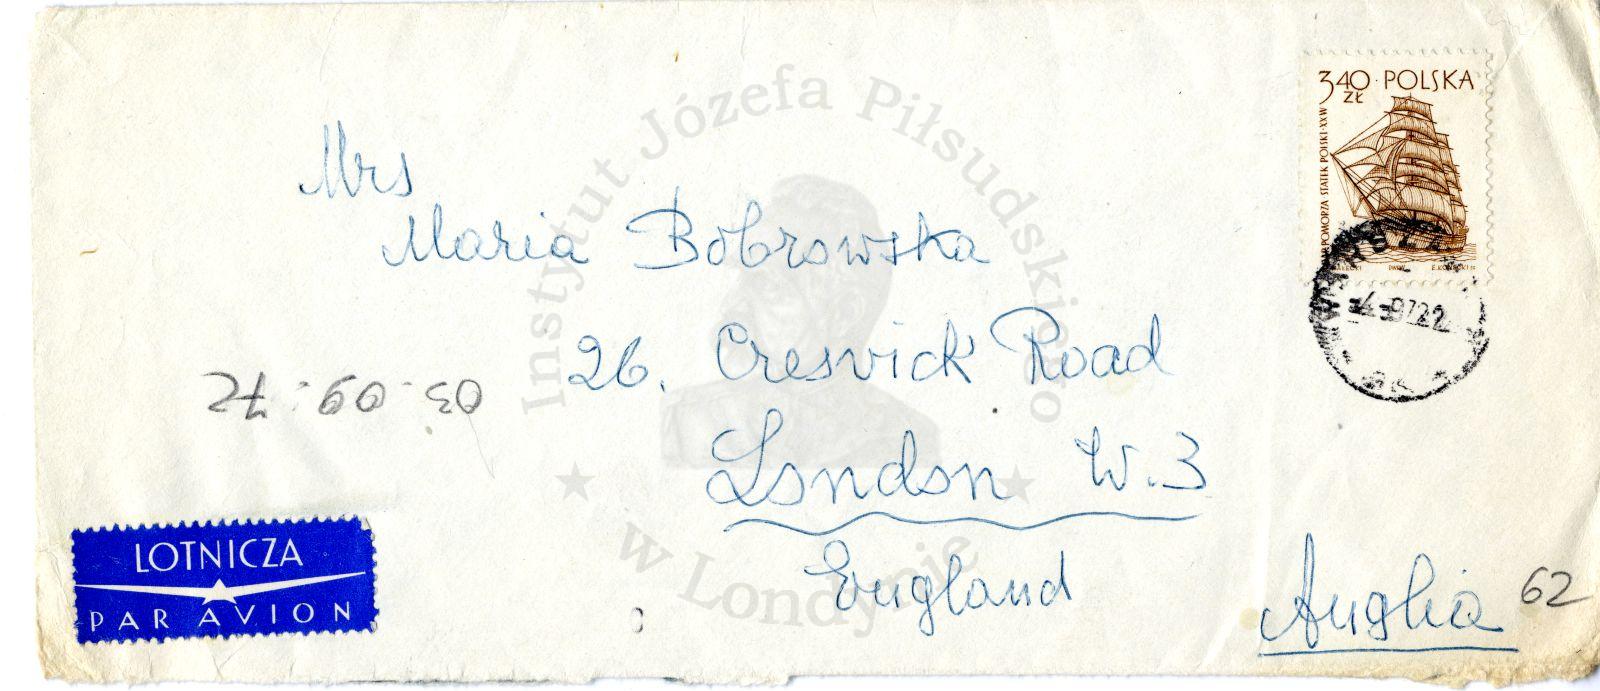 3,40 · POLSKA
ZŁ
POMORZA STATEK POLSKI-XX W
PWPW
-4-9 72 22
Mrs
Maria Bobrowska
26. Cresvick Road
London W.3
England
Anglia
62
03.09.72
LOTNICZA
PAR AVION
Instytut Józefa Piłsudskiego
w Londynie